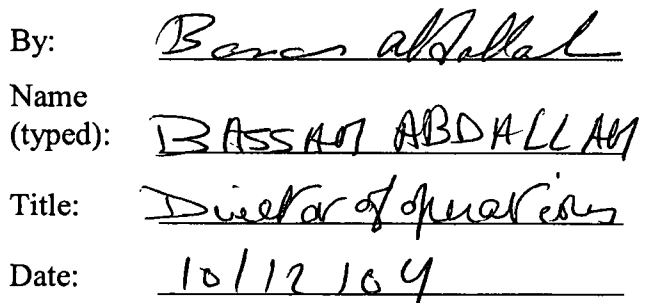 By: Bassam Abdallah
Name
(typed): BASSAM ABDALLAH
Title: Director of operations
Date: 10/12/04